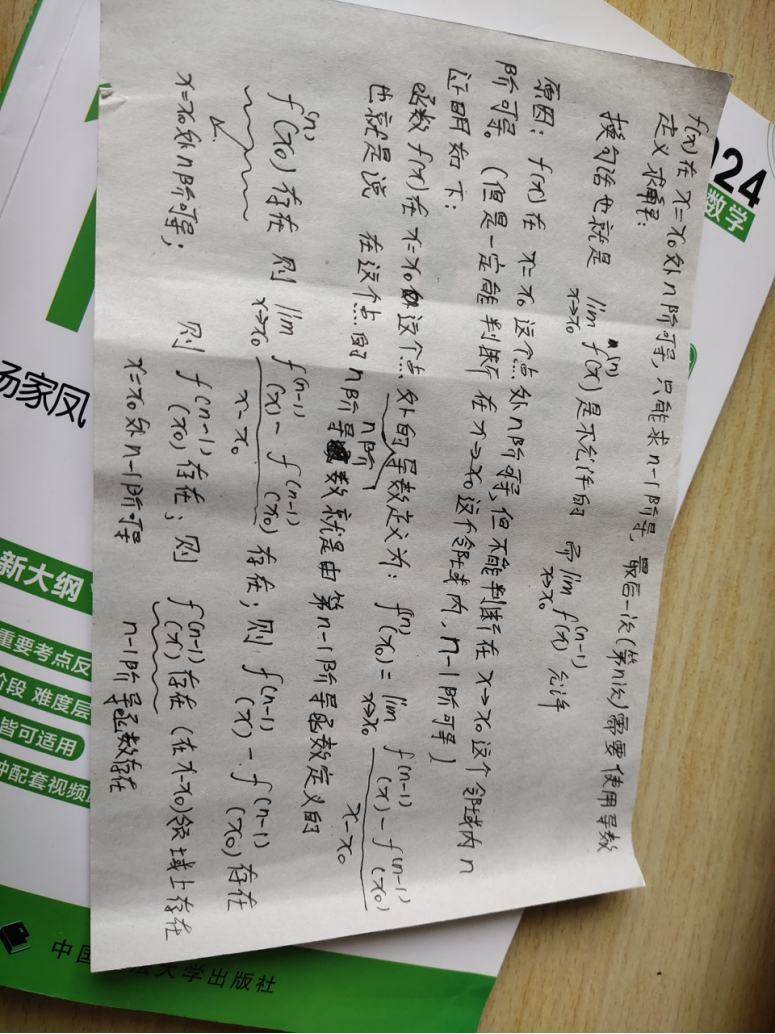 f(x)在x=x₀处n阶可导,只能求n-1阶导,最后一次(第n次)需要使用导数
定义求解:
换句话也就是 lim x→x₀ f⁽ⁿ⁾(x)是不允许的 而 lim x→x₀ f⁽ⁿ⁻¹⁾(x) 允许
原因:f(x)在x=x₀这个点处n阶可导,但不能判断在x→x₀这个邻域内n
阶可导。(但是一定能判断在x→x₀这个邻域内,n-1阶可导)
证明如下:
函数f(x)在x=x₀这个点处的n阶导数定义为:f⁽ⁿ⁾(x₀)=lim x→x₀ (f⁽ⁿ⁻¹⁾(x)-f⁽ⁿ⁻¹⁾(x₀))/(x-x₀)
也就是说 在这个点的n阶导数就是由第n-1阶导函数定义的
f⁽ⁿ⁾(x₀)存在 则 lim x→x₀ (f⁽ⁿ⁻¹⁾(x)-f⁽ⁿ⁻¹⁾(x₀))/(x-x₀) 存在;则 f⁽ⁿ⁻¹⁾(x)-f⁽ⁿ⁻¹⁾(x₀)存在
x=x₀处n阶可导;
则f⁽ⁿ⁻¹⁾(x₀)存在;则 f⁽ⁿ⁻¹⁾(x)存在(在x→x₀)领域上存在
x=x₀处n-1阶可导
n-1阶导函数存在
24
数学
杨家凤
新大纲
重要考点反
阶段 难度层
皆可适用
配套视频
中国
大学出版社